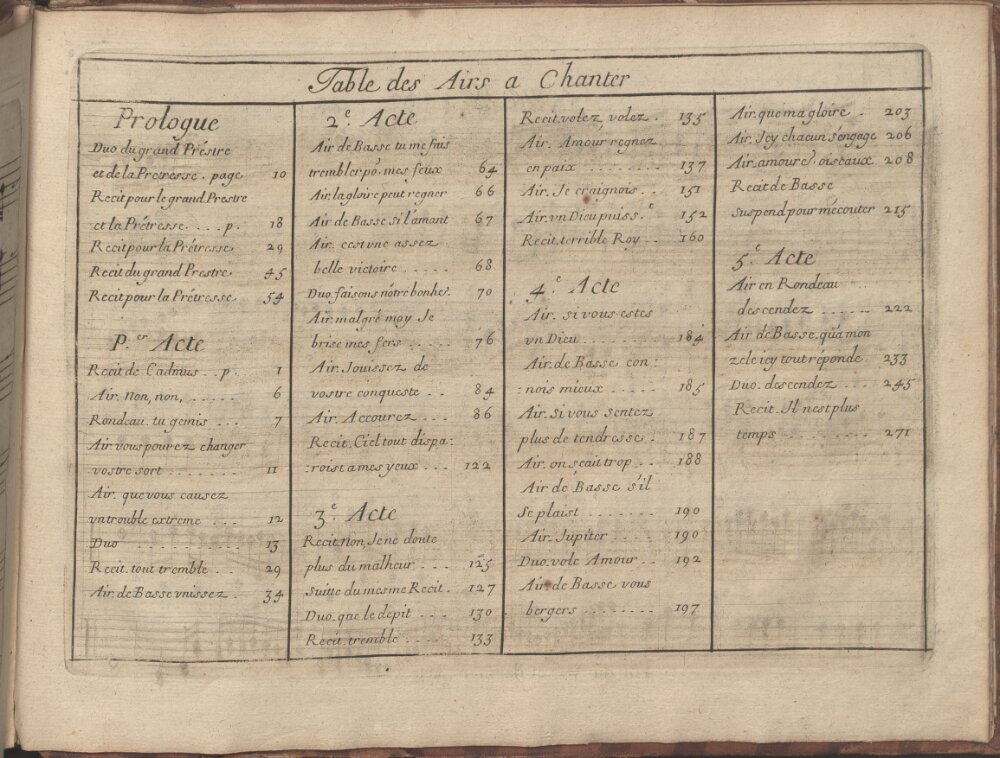 Table des Airs a Chanter
Prologue
Duo du grand Préstre
et de la Prétresse . page 10
Recit pour le grand Prestre
et la Prétresse . . . . p. 18
Recit pour la Prétresse 29
Recit du grand Prestre 45
Recit pour la Prétresse 54
P.er Acte
Recit de Cadmus . . p. 1
Air. Non, non, . . . . . 6
Rondeau. tu gemis . . . 7
Air. vous pourez changer
vostre sort . . . . . . . 11
Air. que vous causez
vn trouble extreme . . . 12
Duo . . . . . . . . . . 13
Recit. tout tremble . . 29
Air. de Basse vnissez . 34
2.e Acte
Air de Basse tu me fais
trembler po. mes feux 64
Air. la gloire peut regner 66
Air de Basse. si l'amant 67
Air. c'est vne assez
belle victoire . . . . . 68
Duo. faisons nôtre bonhe. 70
Air. malgré moy Je
brise mes fers . . . . 76
Air. Jouissez de
vostre conqueste . . 84
Air. Accourez . . . 86
Recit. Ciel tout dispa:
:roist a mes yeux . . . 122
3.e Acte
Recit. Non, Je ne doute
plus du malheur . . . 125
Suitte du mesme Recit. 127
Duo. que le depit . . . 130
Recit. tremble . . . . 133
Recit. volez, volez . 135
Air. Amour regnez
en paix . . . . . . . . 137
Air. Je craignois . . . 151
Air. vn Dieu puiss.e 152
Recit. terrible Roy . . 160
4.e Acte
Air. si vous estes
vn Dieu . . . . . . . 184
Air. de Basse con:
:nois mieux . . . . . 185
Air. Si vous sentez
plus de tendresse . 187
Air. on scait trop . . 188
Air de Basse s'il
se plaist . . . . . . 190
Air. Jupiter . . . . 190
Duo. vole Amour . . 192
Air. de Basse vous
bergers . . . . . . . . 197
Air. que ma gloire . 203
Air. Jcy chacun s'engage 206
Air. amoureu.s oiseaux 208
Recit de Basse
suspend pour m'écouter 215
5.e Acte
Air en Rondeau
descendez . . . . . . 222
Air de Basse. qu'a mon
zele icy tout réponde 233
Duo. descendez . . . . 245
Recit. Il n'est plus
temps . . . . . . . . . 271